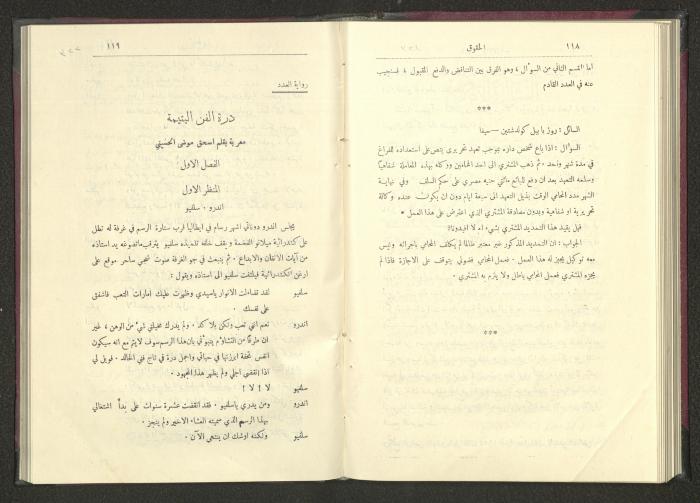 ١١٨
الحقوق
اما القسم الثاني من السؤال ، وهو الفرق بين التناقض والدفع المقبول ، فسنجيب
عنه في العدد القادم
***
السائل : روز باييلي كولدشتين — حيفا
السؤال : اذا باع شخص داره بموجب تعهد تحريري ينص على استعداده للفراغ
في مدة شهر واحد ، ثم ذهب المشتري الى احد المحامين ووكله بهذه المعاملة شفاهياً
وسلمه التعهد بعد ان دفع للبائع مائتي جنيه مصري على حكم السلف وفي نهاية
الشهر مدد المحامي الوقت بذيل التعهد الى سبعة ايام دون ان يكون عنده وكالة
تحريرية او شفاهية وبدون مصادقة المشتري الذي اعترض على هذا العمل •
فهل يقيد هذا التمديد المشتري بشيء ام لا افيدونا؟
الجواب : ان التمديد المذكور غير معتبر طالما لم يكلف المحامي باجرائه وليس
معه توكيل يجيز له هذا العمل . فعمل المحامي فضولي يتوقف على الاجازة فاذا لم
يجزه المشتري فعمل المحامي باطل ولا يلزم به المشتري .
***
١١٩
رواية العدد
درة الفن اليتيمة
معربة بقلم اسحق موسى الحسيني
الفصل الاول
المنظر الاول
اندرو ، سلفيو
يجلس اندرو دوناتي اشهر رسام في ايطاليا قرب ستارة الرسم في غرفة له تطل
على كتدرائية ميلانو الفخمة ويقف خلفه تلميذه سلفيو يترقب ما تصوغه يد استاذه
من آيات الاتقان والابداع . ثم ينبعث في جو الغرفة صوت شجي ساحر موقع على
ارغن الكتدرائية فيلتفت سلفيو الى استاذه ويقول :
سلفيو لقد تضاءلت الانوار ياسيدي وظهرت عليك امارات التعب فاشفق
على نفسك .
اندرو نعم انني تعب ولكن بلا كد . ولم يدرك مخيلتي شيء من الوهن ، غير
ان طرفا من التشاؤم ينبوءني بان هذا الرسم سوف لا يتم مع انه سيكون
انفس تحفة ابرزتها في حياتي واجمل درة في تاج فني الخالد . فويل لي
اذا انقضى اجلي ولم يظهر هذا المجهود .
سلفيو لا ! لا !
اندرو ومن يدري ياسلفيو . فقد انقضت عشرة سنوات على بدأ اشتغالي
بهذا الرسم الذي سميته العشاء الاخير ولم ينجز .
سلفيو ولكنه اوشك ان ينتهي الآن .